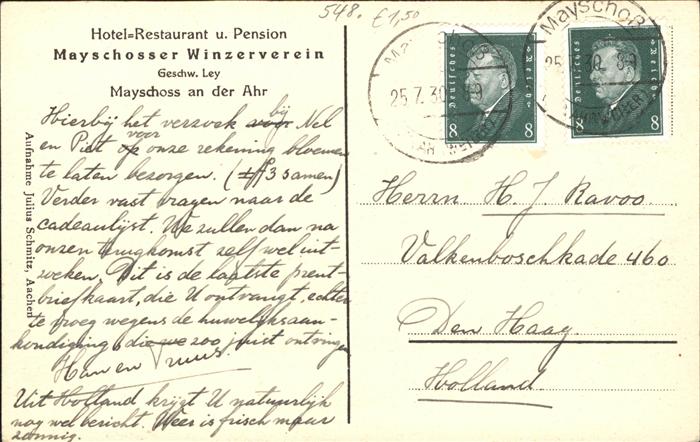 548. £1,50
Hotel-Restaurant u. Pension
Mayschosser Winzerverein
Geschw. Ley
Mayschoss an der Ahr
Aufnahme Julius Schmitz, Aachen
Hierbij het verzoek bij Nel
en Piet voor onze rekening bloemen
te laten bezorgen. (± f3 samen)
Verder vast vragen naar de
cadeaulijst. We zullen dan na
onzen terugkomst zelf wel uit-
zoeken. Dit is de laatste prent-
briefkaart, die U ontvangt, echter
te vroeg wegens de huwelijksaan-
kondiging, die we zoo juist ontvingen
Han en
Uit Holland krijgt U natuurlijk
nog wel bericht. Weer is frisch maar
zonnig.
Deutsches Reich
8 8
Deutsches Reich
8 8
Mayschoß
25.7.30
Mayschoß
25
Herrn H. J. Ravoo.
Valkenboschkade 460
Den Haag
Holland